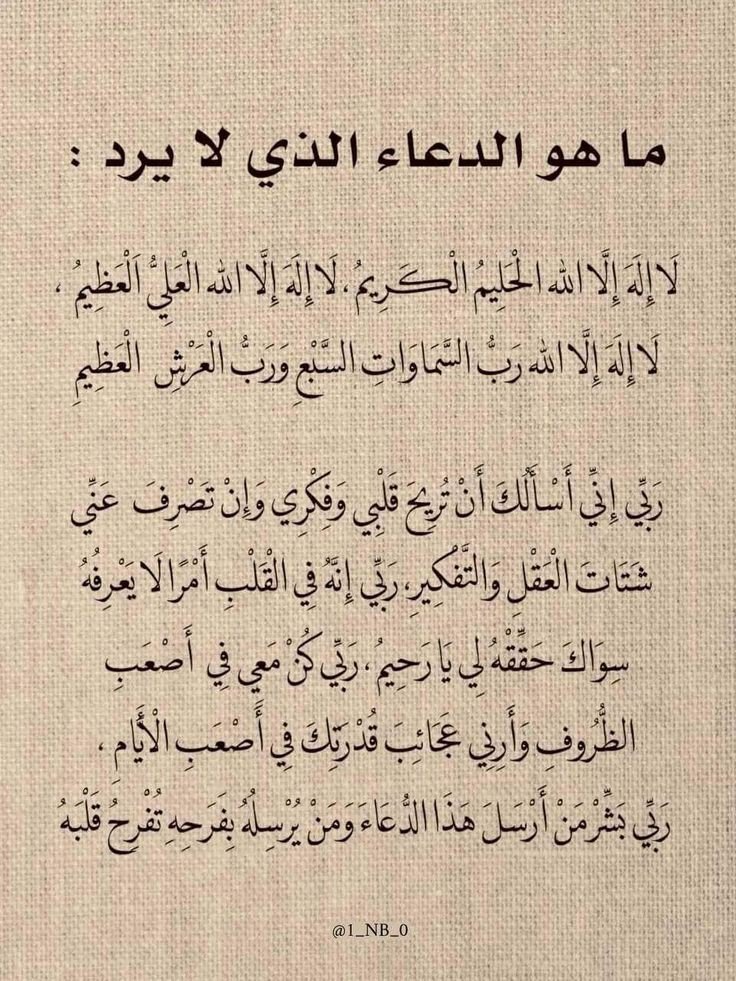 ما هو الدعاء الذي لا يرد :
لَا إِلَهَ إِلَّا الله الْحَلِيمُ الْكَرِيمُ، لَا إِلَهَ إِلَّا الله الْعَلِيُّ اَلْعَظِيمُ ،
لَا إِلَهَ إِلَّا الله رَبُّ السَّمَاوَاتِ السَّبْعِ وَرَبُّ الْعَرْشِ الْعَظِيمِ
رَبِّي إِنِّي أَسْأَلُكَ أَنْ تُرِيحَ قَلْبِي وَفِكْرِي وَإِنْ تَصْرِفَ عَنِّي
شَتَاتَ الْعَقْلِ وَالتَّفْكِيرِ، رَبِّي إِنَّهُ فِي الْقَلْبِ أَمْرًا لَا يَعْرِفُهُ
سِوَاكَ حَقِّقْهُ لِي يَا رَحِيمُ، رَبِّي كُنْ مَعِي فِي أَصْعَبِ
الظُّرُوفِ وَأَرِنِي عَجَائِبَ قُدْرَتِكَ فِي أَصْعَبِ الْأَيَّامِ ،
رَبِّي بَشِّرْ مَنْ أَرْسَلَ هَذَا الدُّعَاءَ وَمَنْ يُرْسِلُهُ بِفَرَحِهِ تُفْرِحُ قَلْبَهُ
@1_NB_0